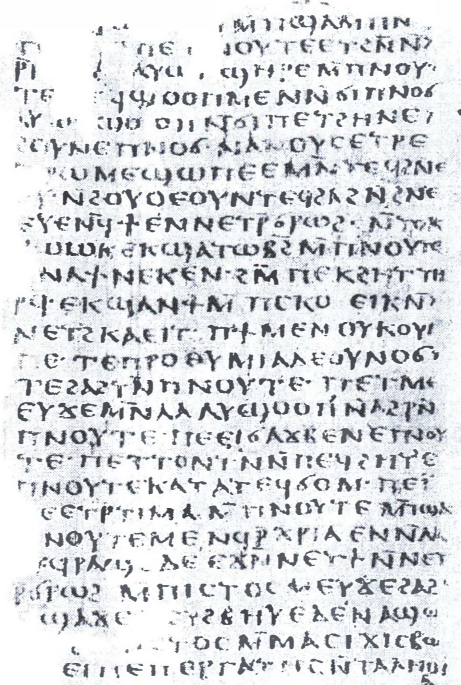 ⲙ̄ⲡϣⲁ ⲙ̄ⲡⲛ
ⲡⲉⲧ ⲛⲟⲩⲧⲉ ⲉⲧϩⲛ̄ⲛ
ⲣⲓ ⲁⲩⲱ ϣⲏⲣⲉ ⲙⲡⲛⲟⲩ
ⲧⲉ ϥϣⲟⲟⲡ ⲙⲉⲛ ⲛ̄ϭⲓ ⲡⲛⲟϭ
ϣⲟⲟⲡ ⲛ̄ϭⲓ ⲡⲉⲧϩⲏⲛ ⲉ
ϩⲟⲩⲛ ⲉⲡⲛⲟϭ· ⲛⲁⲛⲟⲩⲥ ⲉⲧⲣⲉ
ⲣⲱⲙⲉ ϣⲱⲡⲉ ⲉⲙⲛ̄ⲧⲉϥϩⲛⲉ
ⲛϩⲟⲩⲟ ⲉⲟⲩⲛⲧⲉϥϩⲁϩ ⲛ̄ϩⲛⲉ
ⲉⲩⲉⲛϥ̄ϯ ⲉⲛ ⲛⲉⲧⲣ̄ϭⲣⲱϩ· ⲛ̄ⲧⲟⲕ
ϩⲱⲱⲕ ⲉⲕϣⲁⲧⲱⲃϩ ⲙ̄ⲡⲛⲟⲩⲧⲉ
ⲛⲁϯ ⲛⲉⲕ ⲉⲛ· ϩⲙ̄ ⲡⲉⲕϩⲏⲧ ⲧⲏ
ⲣϥ ⲉⲕϣⲁⲛϯ ⲙ̄ ⲡⲉⲕⲟⲉⲓⲕ ⲛ̄
ⲛⲉⲧϩⲕⲁⲉⲓⲧ· ⲡϯ ⲙⲉⲛ ⲟⲩⲕⲟⲩⲓ
ⲡⲉ· ⲧⲉⲡⲣⲟⲑⲩⲙⲓⲁ ⲇⲉ ⲟⲩⲛⲟϭ
ⲧⲉ ϩⲁϩⲧⲛ ⲡⲛⲟⲩⲧⲉ· ⲡⲉⲧⲙⲉ
ⲉⲩϫⲉ ⲙⲛ ⲗⲁⲁⲩ ϣⲟⲟⲡ ⲛ̄ⲛⲁϩⲣⲛ̄
ⲡⲛⲟⲩⲧⲉ· ⲡⲉⲉⲓ ϭⲁϫⲃ ⲉⲛ ⲉⲡⲛⲟⲩ
ⲧⲉ· ⲡⲉⲧⲧⲟⲛⲧⲛ̄ⲛ ⲡⲉϥϩⲏⲧ ⲉ
ⲡⲛⲟⲩⲧⲉ ⲕⲁⲧⲁ ⲧⲉϥϭⲟⲙ· ⲡⲉⲓ
ⲉⲧⲣ̄ⲧⲓⲙⲁ ⲙ̄ⲡⲛⲟⲩⲧⲉ ⲙ̄ⲡϣⲁ
ⲛⲟⲩⲧⲉ ⲙⲉⲛ ϥⲣ̄ⲭⲣⲓⲁ ⲉⲛ ⲛ̄ⲗⲁ
ϥⲣⲁϣⲉ ⲇⲉ ⲉϫⲛ̄ ⲛⲉⲧϯ ⲛ̄ⲛⲉⲧ
ⲣ̄ϭⲣⲱϩ· ⲙ̄ⲡⲓⲥⲧⲟⲥ ⲙⲉⲩϫⲉ ϩⲁϩ
ϣⲁϫⲉ ⲛⲉⲩϩⲃⲏⲩⲉ ⲇⲉ ⲛⲁϣⲱ
ⲧⲟⲥ ⲙ̄ⲙⲁⲥⲓϫⲓⲥⲃⲱ
ⲡⲉ ⲡⲉⲣⲅⲁⲧⲏⲥ ⲛ̄ⲧⲁⲗⲏⲑⲓ